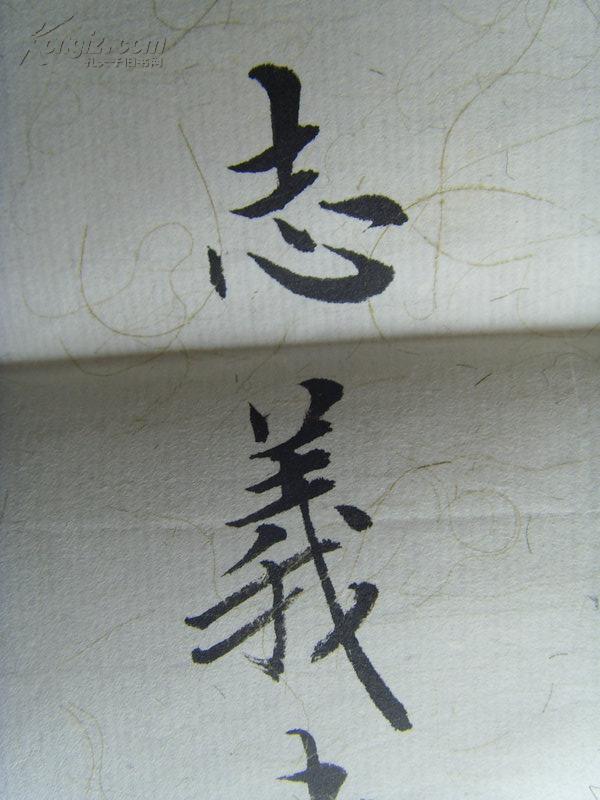 Kongfz.com
孔夫子旧书网
志
義